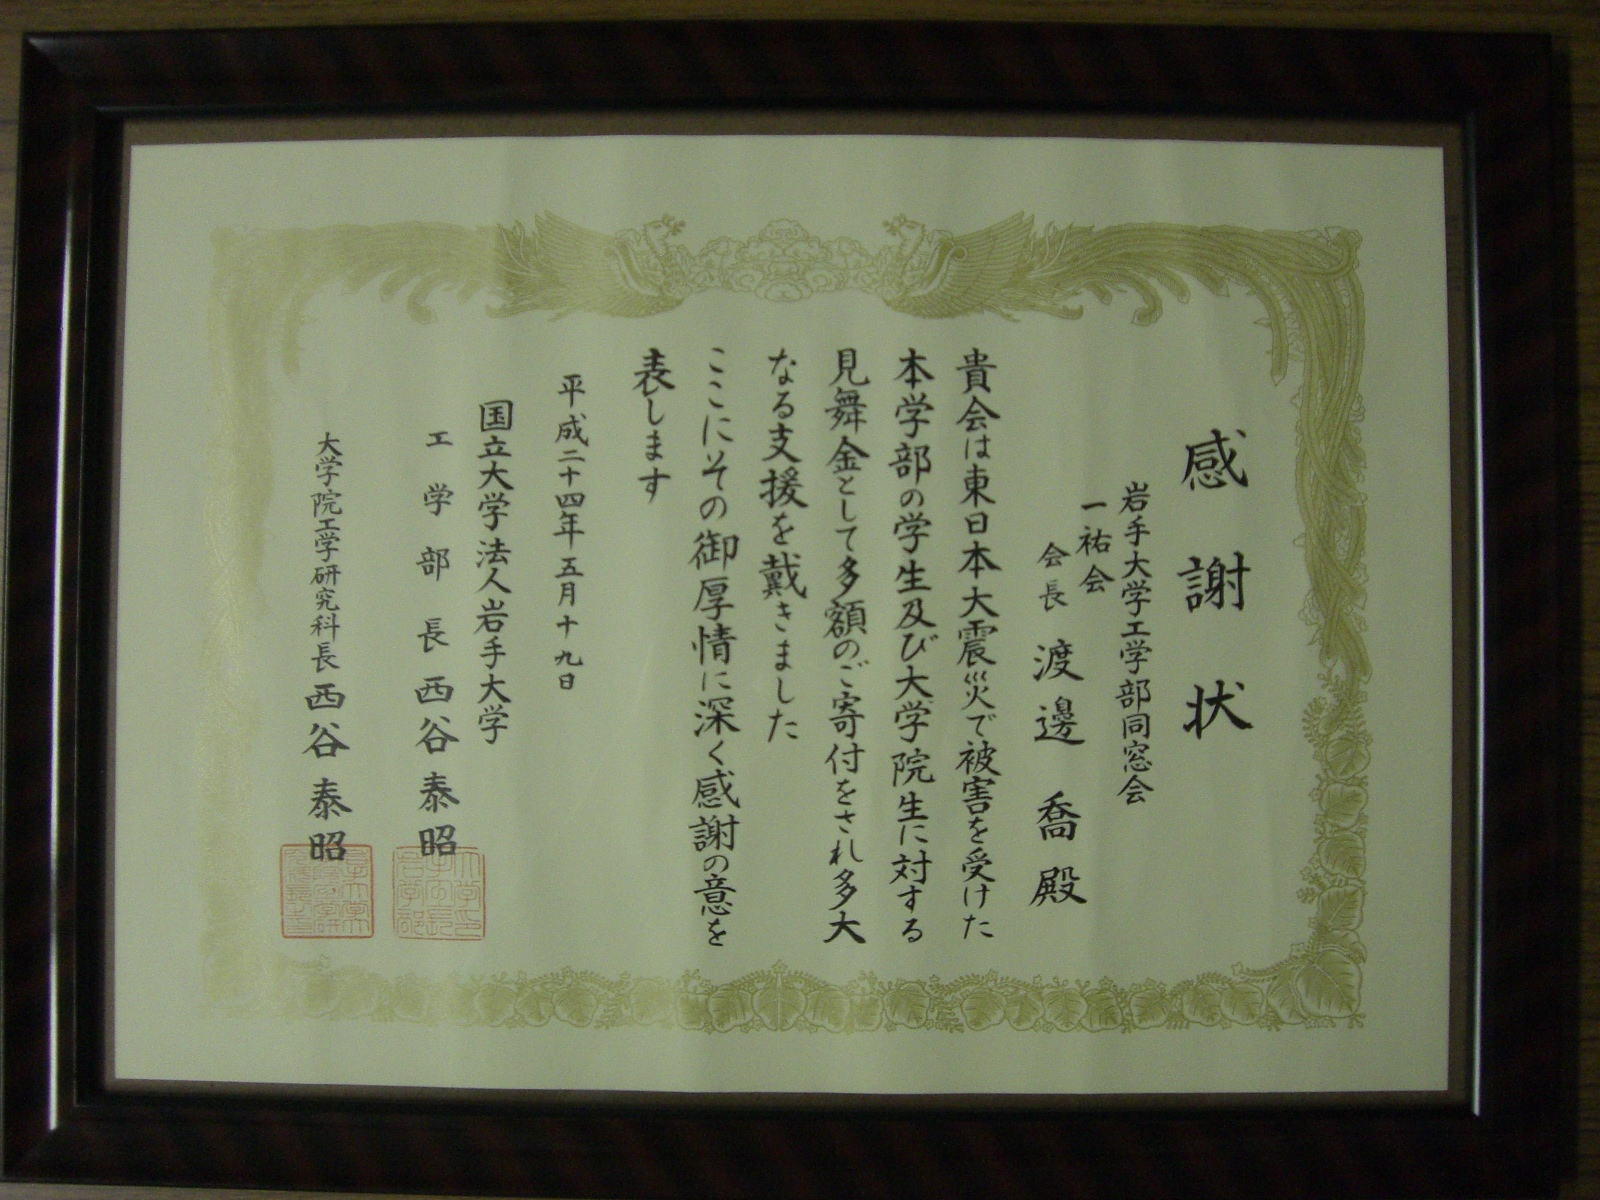 感謝状
岩手大学工学部同窓会
一祐会
会長 渡邊 喬 殿
貴会は東日本大震災で被害を受けた
本学部の学生及び大学院生に対する
見舞金として多額のご寄付をされ多大
なる支援を戴きました
ここにその御厚情に深く感謝の意を
表します
平成二十四年五月十九日
国立大学法人岩手大学
工学部長 西谷泰昭
大学院工学研究科長 西谷泰昭